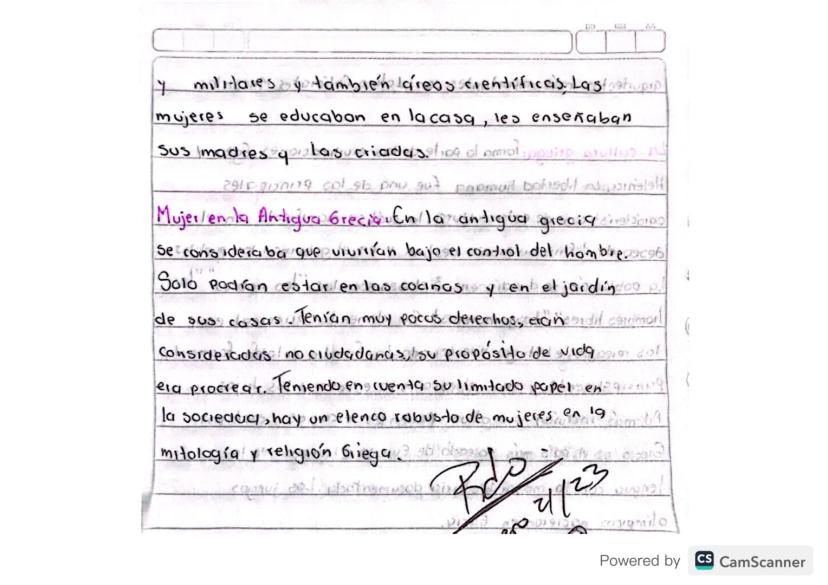 y militares y también áreas científicas. Las
mujeres se educaban en la casa, les enseñaban
sus madres y las criadas.
Mujer en la Antigua Grecia. En la antigüa grecia
se consideraba que vivirían bajo el control del hombre.
Solo podían estar en las cocinas y en el jardín
de sus casas. Tenían muy pocos derechos, eran
consideradas no ciudadanas, su propósito de vida
era procrear. Teniendo en cuenta su limitado papel en
la sociedad, hay un elenco robusto de mujeres en la
mitología y religión Griega.
Rdo
21/23
Powered by CS CamScanner